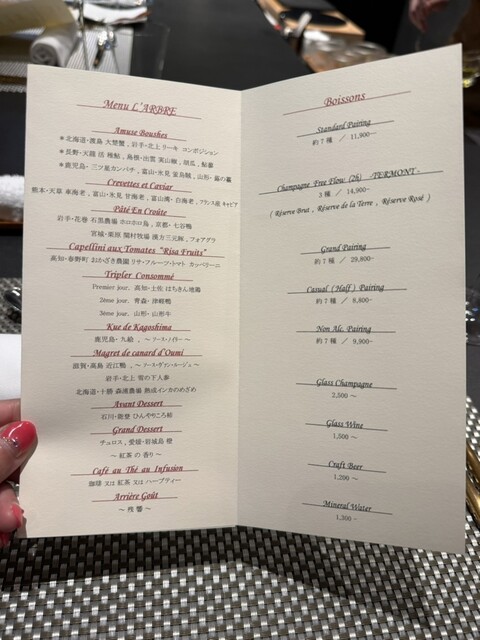 Menu L'ARBRE
Amuse Boushes
*北海道・渡島 大蟹蟹, 岩手・北上 リーキ コンポジション
*長野・天龍 活 稚鮎, 島根・出雲 実山椒, 胡瓜, 鮎醤
*鹿児島・三ツ星カンパチ, 富山・氷見 釜烏賊, 山形・
Crevettes et Caviar
熊本・天草 車海老, 富山・氷見 甘海老, 富山湾・白海老, フランス産 キャビア
Pâté En Croûte
岩手・花巻 石黒農場 ホロホロ鳥, 京都・七谷鴨
宮城・栗原 関村牧場 漢方三元豚, フォアグラ
Capellini aux Tomates "Risa Fruits"
高知・春野町 おかざき農園 リサ・フルーツ・トマト カッペリーニ
Tripler Consommé
Premier jour. 高知・土佐 はちきん地鶏
2éme jour. 青森・津軽鴨
3éme jour. 山形・山形牛
Kue de Kagoshima
鹿児島・九絵, ～ソース・ノイリー～
Magret de canard d'Oumi
滋賀・高島 近江鴨, ～ソース・ヴァン・ルージュ～
岩手・北上 雪の下人参
北海道・十勝 森浦農場 熟成インカのめざめ
Avant Dessert
石川・能登 ひんやりころ柿
Grand Dessert
チュロス, 愛媛・岩城島 橙
～ 紅茶 の 香り ～
Café au Thé au Infusion
珈琲 又は 紅茶 又は ハーブティー
Arrière Goût
～ 残響 ～
Boissons
Standard Pairing
約 7 種 / 11,900-
Champagne Free Flow (2h) -TERMONT-
3 種 / 14,900-
( Réserve Brut , Réserve de la Terre , Réserve Rosé )
Grand Pairing
約 7 種 / 29,800-
Casual ( Half ) Pairing
約 7 種 / 8,800-
Non Alc. Pairing
約 7 種 / 9,900-
Glass Champagne
2,500 ～
Glass Wine
1,500 ～
Craft Beer
1,200 ～
Mineral Water
1,300 -